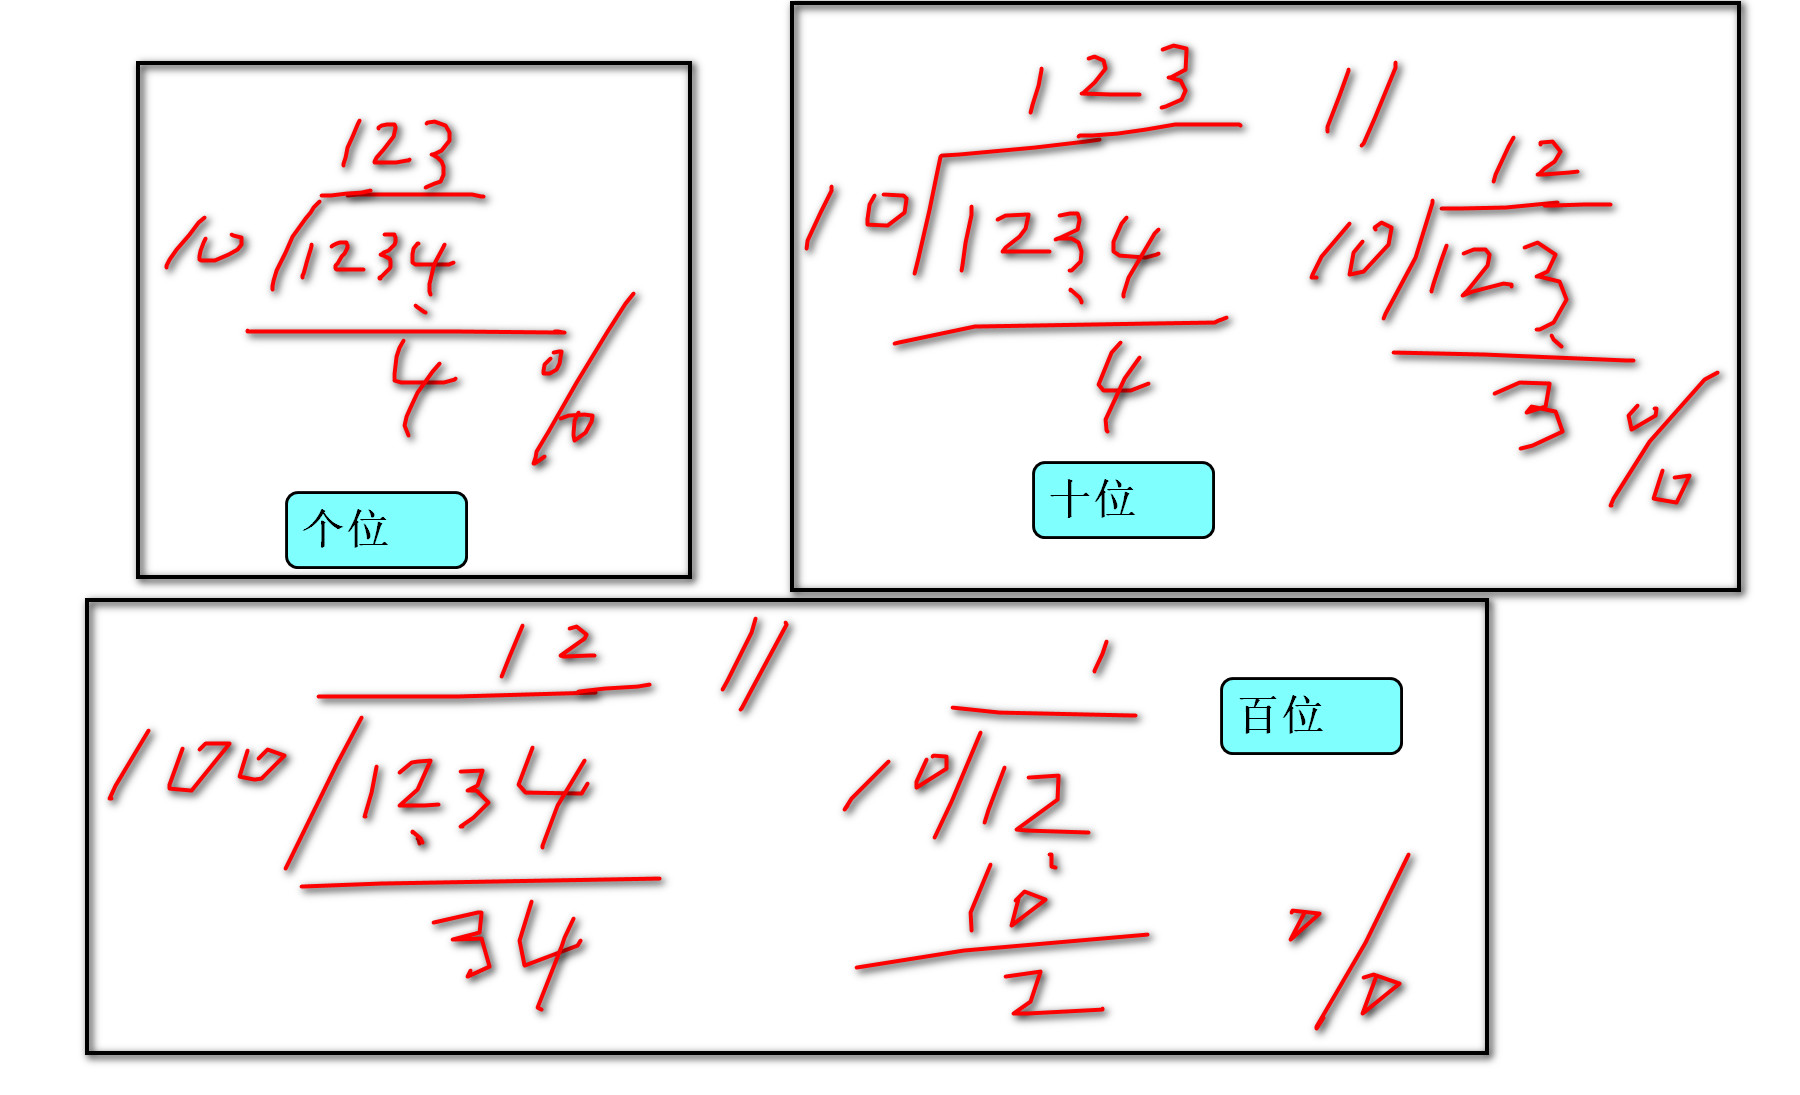 123
10 1234
4 %
个位
123 //
10 1234
4
12
10 123
3 %
十位
12 //
100 1234
34
1
10 12
10
2 %
百位